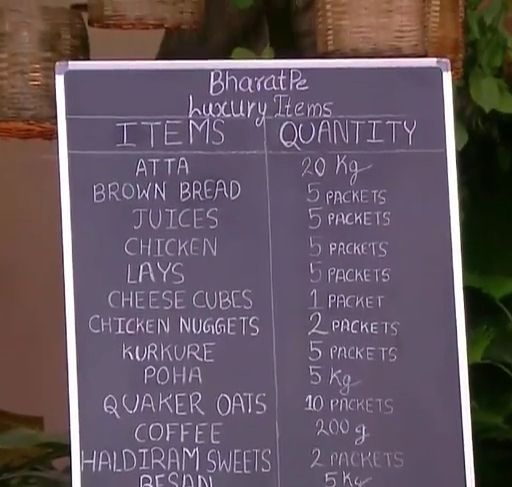 BharatPe
Luxury Items
ITEMS QUANTITY
ATTA 20 Kg
BROWN BREAD 5 PACKETS
JUICES 5 PACKETS
CHICKEN 5 PACKETS
LAYS 5 PACKETS
CHEESE CUBES 1 PACKET
CHICKEN NUGGETS 2 PACKETS
KURKURE 5 PACKETS
POHA 5 Kg
QUAKER OATS 10 PACKETS
COFFEE 200 g
HALDIRAM SWEETS 2 PACKETS
BESAN 5 Kg